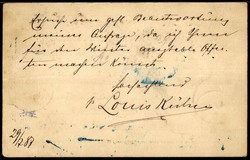 Ersuche um gefl. Beantwortung
meiner Anfrage, da ich Ihnen
für den Winter ausgiebige Offer-
ten machen könnte.
Hochachtend
Louis Kühne
29/7 89